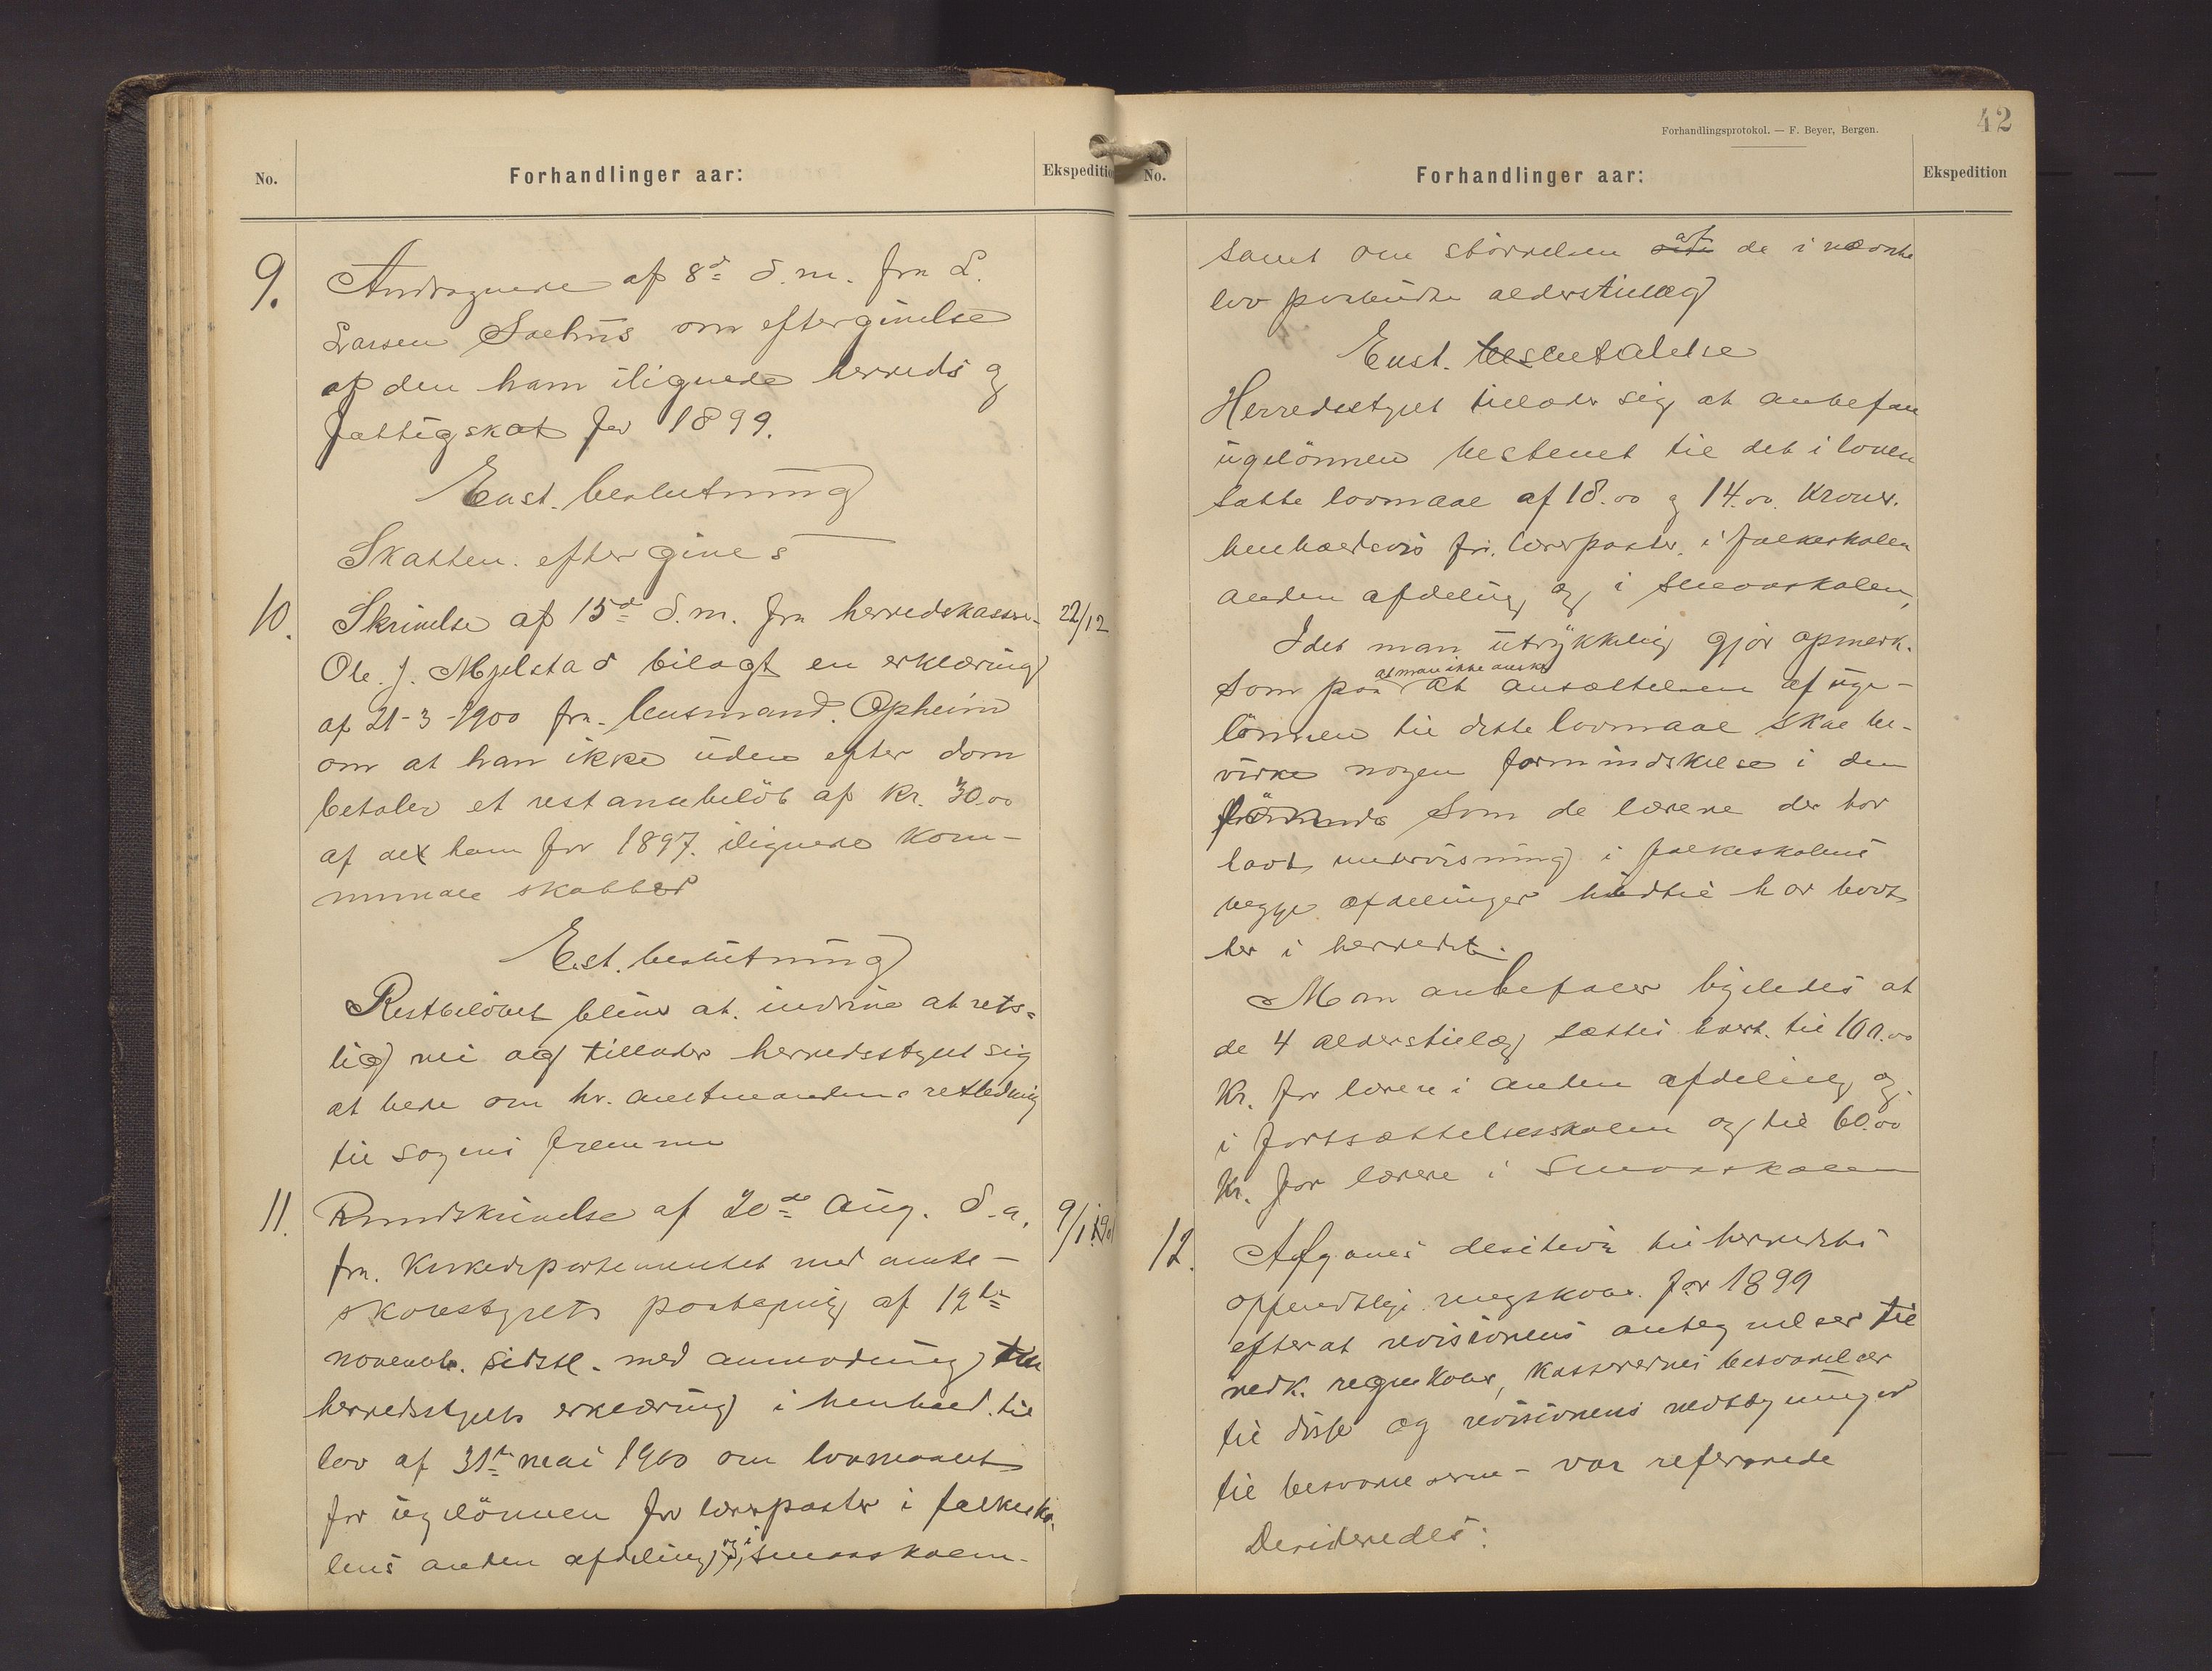 No.
Forhandlinger aar:
Ekspeditio
9.
Andragende af 8de d.m. fra L.
Larsen Saehus om eftergivelse
af den ham ilignede herreds og
fattigskat for 1899.
Enst. beslutning
Skatten eftergives
10.
Skrivelse af 15de d.m. fra herredskasse-
22/12
Ole J. Mjelstad bilagt en erklæring
af 21-3-1900 fra lensmand Opheim
om at han ikke uden efter dom
betaler et restancebelöb af kr. 30.00
af det ham for 1897 ilignede kom-
munale skatter
Est. beslutning
Restbelöbet blive at inddrive at rets-
lig vei og tillader herredsstyret sig
at bede om hr. amtmandens retledning
til sagens fremme
11.
Rundskrivelse af 20de Aug. d.a.
9/1 190
fra Kirkedepartementet med amts-
skolestyrets paategnig af 12te
novemb. sidstl. med anmodning om
herredsstyrets erklæring i henhold til
lov af 31te mai 1900 om lovmaalet
for ugelönnen for lærerposter i folkesko-
lens anden afdeling og i smaaskolen.
Forhandlingsprotokol. — F. Beyer, Bergen.
42
No.
Forhandlinger aar:
Ekspedition
samt om störrelsen af de i nævnte
lov paabudte alderstillæg
Enst. beslutalelse
Herredsstyret tillader sig at anbefale
ugelönnen bestemt til det i loven
satte lovmaal af 18.00 og 14.00 Kroner.
henholdsvis for lærerposter i folkeskolen
anden afdeling og i smaaskolen,
Idet man utrykkelig gjör opmerk-
at man ikke önsker
som paa at ansættelsen af uge-
lönnen til dette lovmaal skal be-
virke nogen formindskelse i den
som de lærere der har
havt undervisning i folkeskolens
begge afdelinger hidtil har havt
her i herredet.
Man anbefaler ligeledes at
de 4 alderstillæg sættes hvert til 100.00
Kr. for lærere i anden afdeling og
i fortsættelsesskolen og til 60.00
Kr. for lærere i Smaaskolen
12.
Afgaves desitevr til herredets
offendtlige regnskaber for 1899
efterat revisionens antegnelser til
nedk. regnskaber, kassererens besvarelser
til disse og revisionens nedtegninger
til besvarelserne - var refererede
Desideredes: